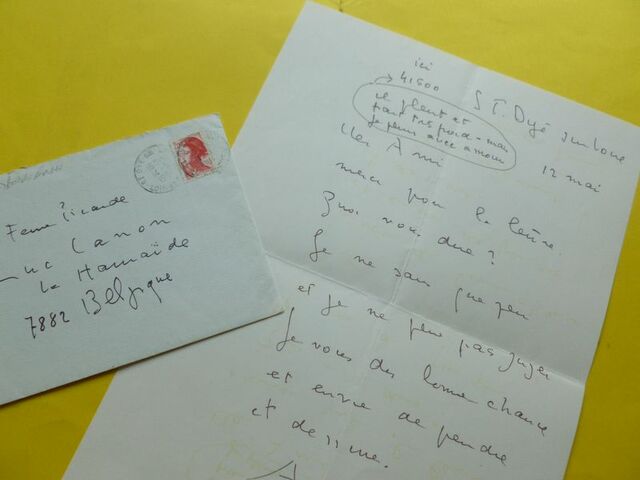 Luc Canon
La Hamaïde
7882 Belgique
ici
41500
St. Dyé sur Loire
il pleut et
fait très froid - mais
je peins avec amour
12 mai
Cher Ami
merci pour la lettre.
Quoi vous dire ?
Je ne sais que peu
et je ne peux pas juger
Je vous dis bonne chance
et envie de peindre
et dessiner.